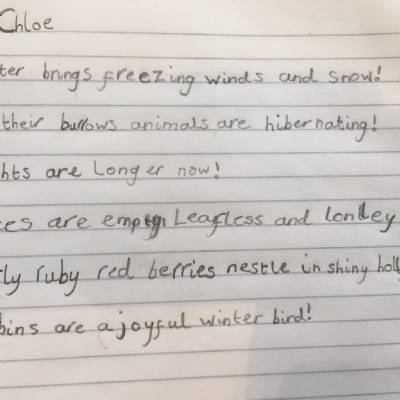 Chloe
ter brings freezing winds and snow!
their burlows animals are hibernating!
hts are Longer now!
es are empty Leafless and lonlley
ly ruby red berries nestle in shiny holl
bins are a joyful winter bird!